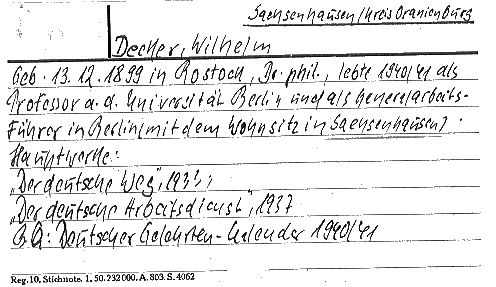 Sachsenhausen/Kreis Oranienburg
Decker, Wilhelm
Geb. 13.12.1899 in Rostock, Dr. phil., lebte 1940/41 als
Professor a. d. Universität Berlin und als Generalarbeits-
führer in Berlin (mit dem Wohnsitz in Sachsenhausen).
Hauptwerke:
„Der deutsche Weg", 1933;
„Der deutsche Arbeitsdienst", 1937
BQ: Deutscher Gelehrten-Kalender 1940/41
Reg. 10. Stichnote. 1. 50. 232000. A. 803. S. 4062